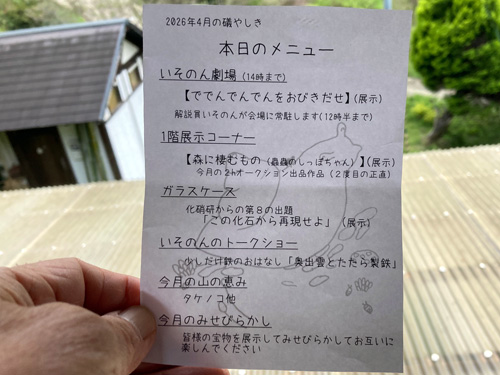 2026年4月の礒やしき
本日のメニュー
いそのん劇場(14時まで)
【ででんでんでんをおびきだせ】(展示)
解説員いそのんが会場に常駐します(12時半まで)
1階展示コーナー
【森に棲むもの(蟲蟲のしっぽちゃん)】(展示)
今月の2hオークション出品作品(2度目の正直)
ガラスケース
化硝研からの第8の出題
「この化石から再現せよ」(展示)
いそのんのトークショー
少しだけ鉄のおはなし「奥出雲とたたら製鉄」
今月の山の恵み
タケノコ他
今月のみせびらかし
皆様の宝物を展示してみせびらかしてお互いに
楽しんでください